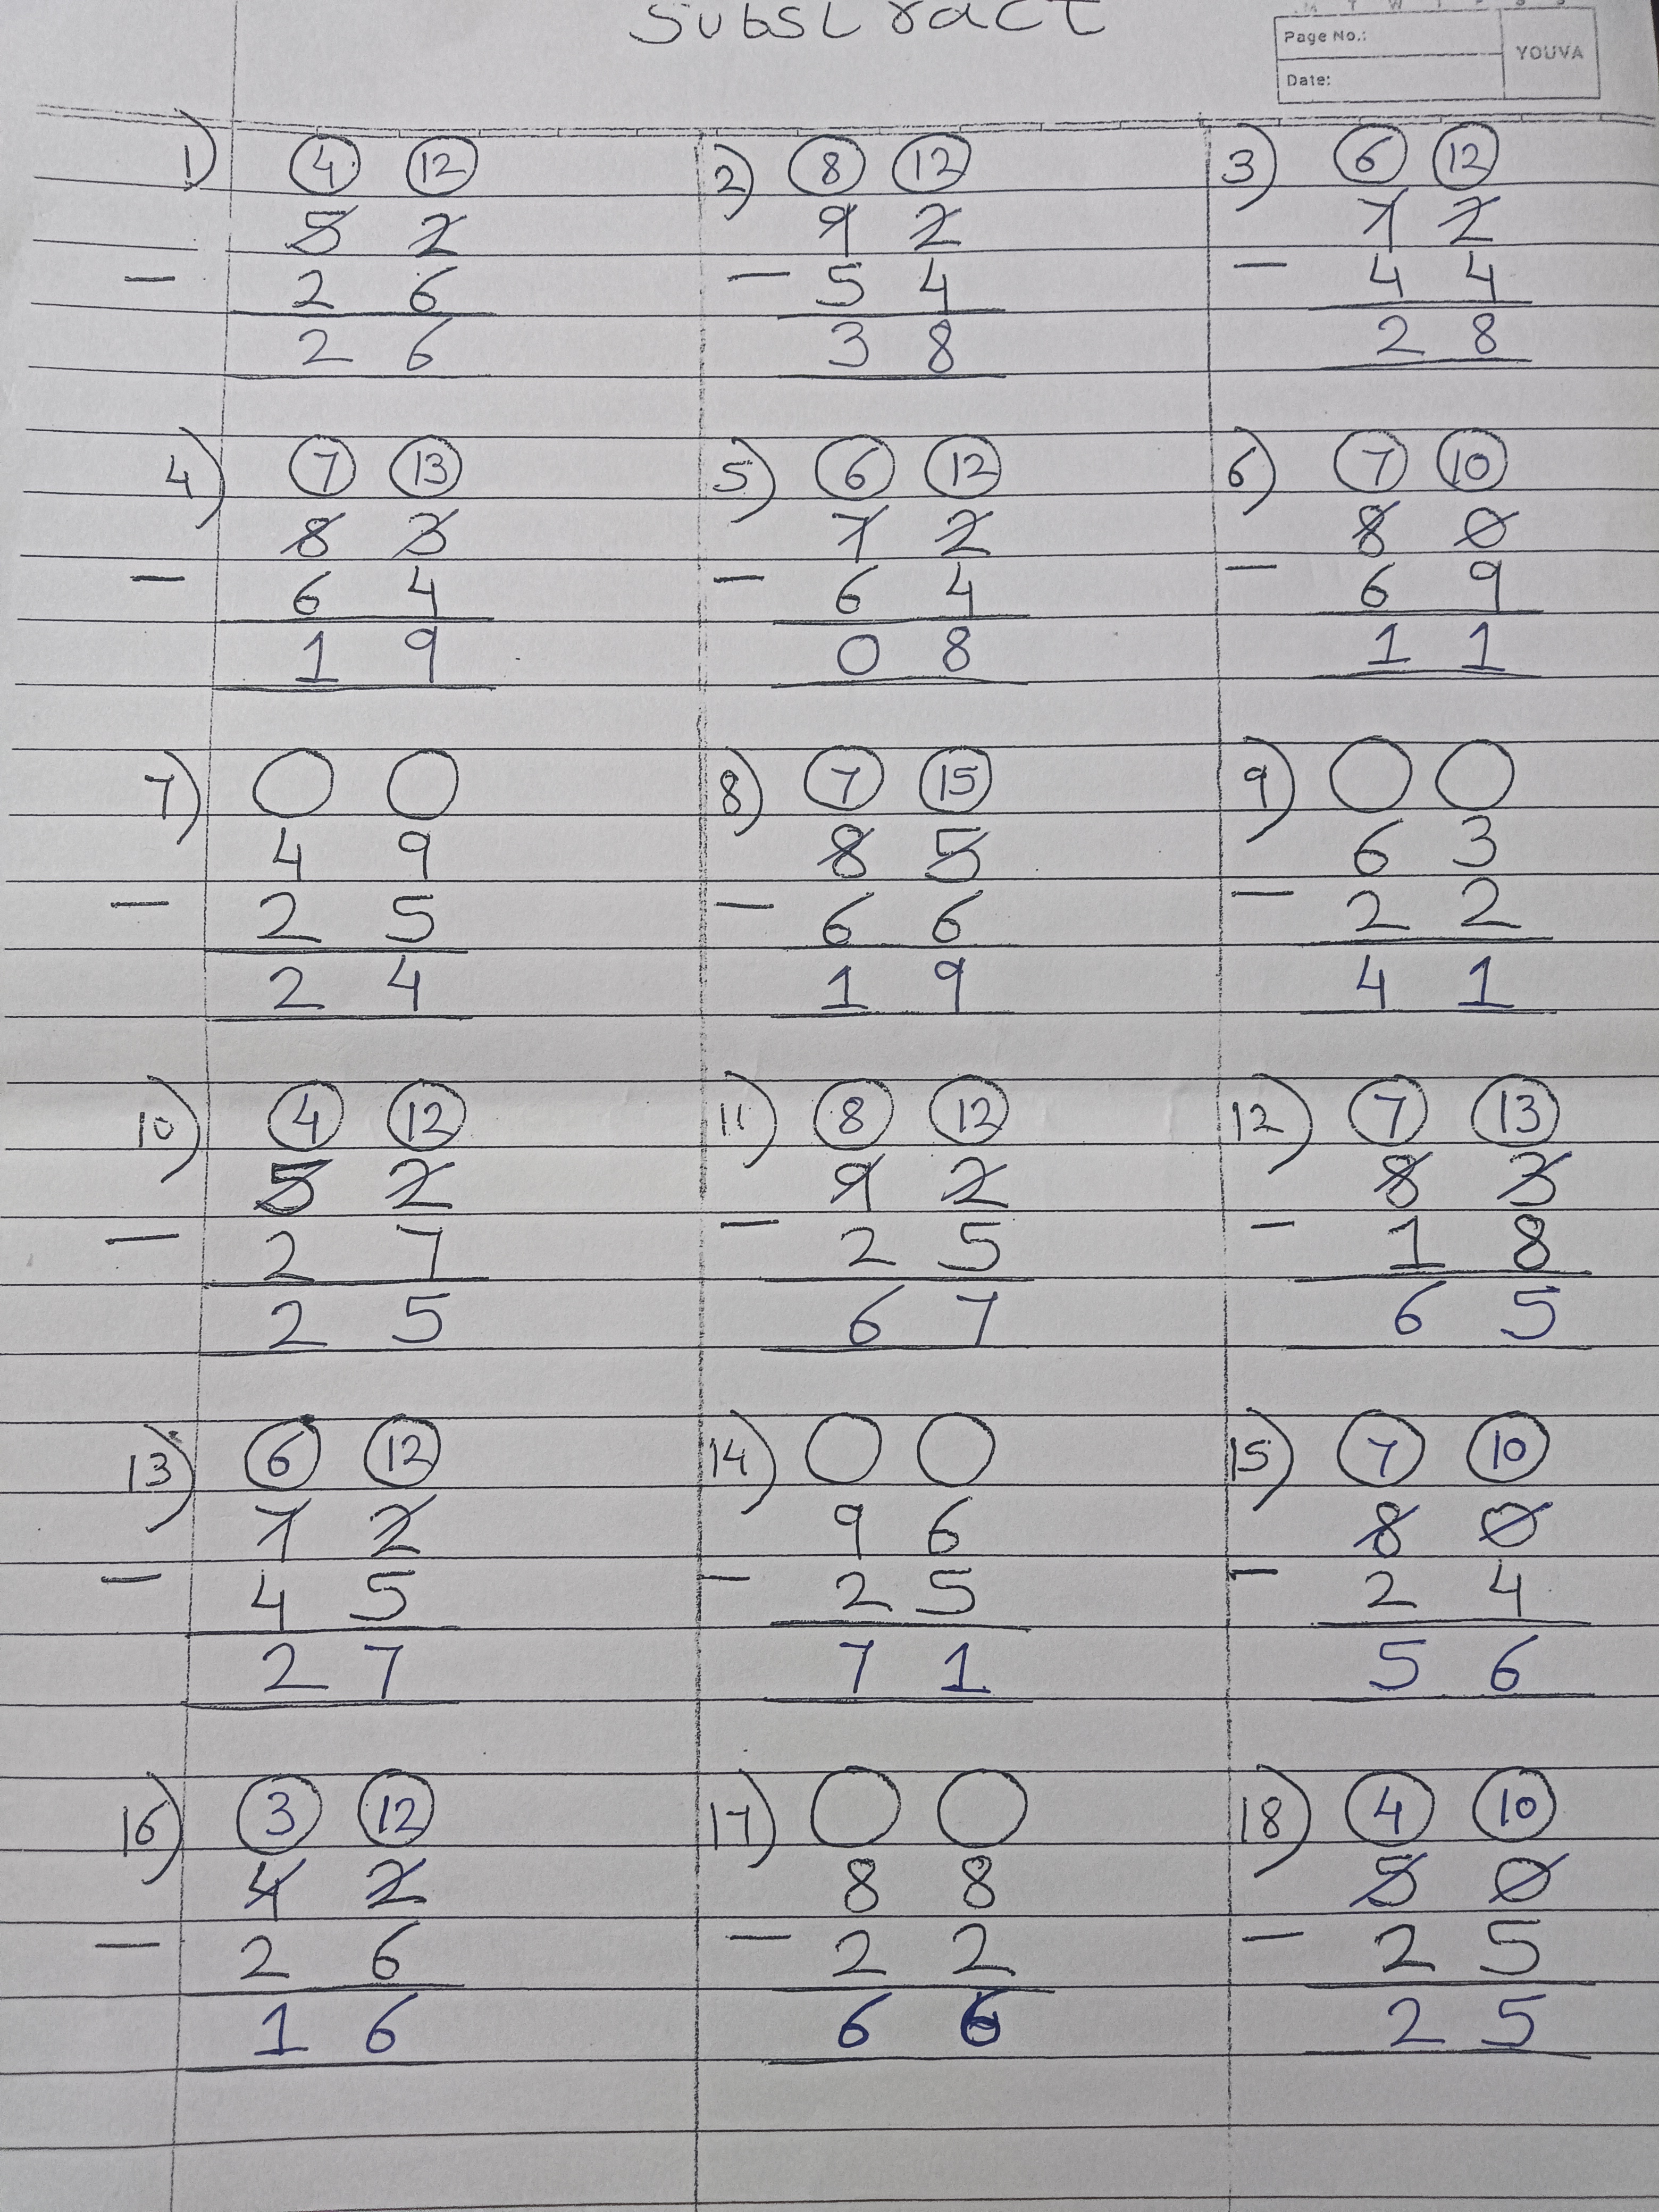 Substract
M T W T F S S
Page No.:
YOUVA
Date:
1) 4 12 2) 8 12 3) 6 12
5 2 9 2 7 2
- 2 6 - 5 4 - 4 4
2 6 3 8 2 8
4) 7 13 5) 6 12 6) 7 10
8 3 7 2 8 0
- 6 4 - 6 4 - 6 9
1 9 0 8 1 1
7) 8) 7 15 9)
4 9 8 5 6 3
- 2 5 - 6 6 - 2 2
2 4 1 9 4 1
10) 4 12 11) 8 12 12) 7 13
5 2 9 2 8 3
- 2 7 - 2 5 - 1 8
2 5 6 7 6 5
13) 6 12 14) 15) 7 10
7 2 9 6 8 0
- 4 5 - 2 5 - 2 4
2 7 7 1 5 6
16) 3 12 17) 18) 4 10
4 2 8 8 5 0
- 2 6 - 2 2 - 2 5
1 6 6 6 2 5